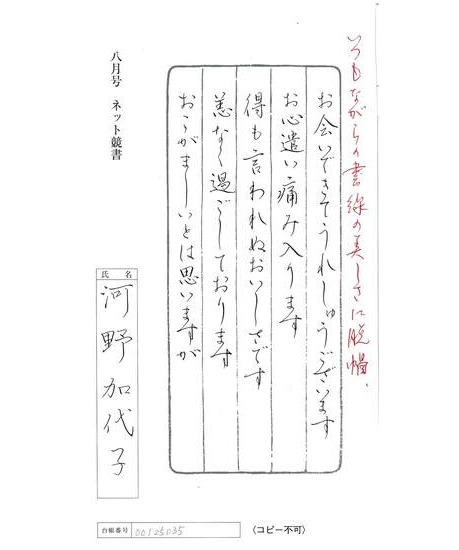 いつもながらの書線の美しさに脱帽、
お会いできてうれしゅうございます
お心遣い痛み入ります
得も言われぬおいしさです
恙なく過ごしております
おこがましいとは思いますが
八月号 ネット競書
氏名
河野加代子
台帳番号 00125035
〈コピー不可〉